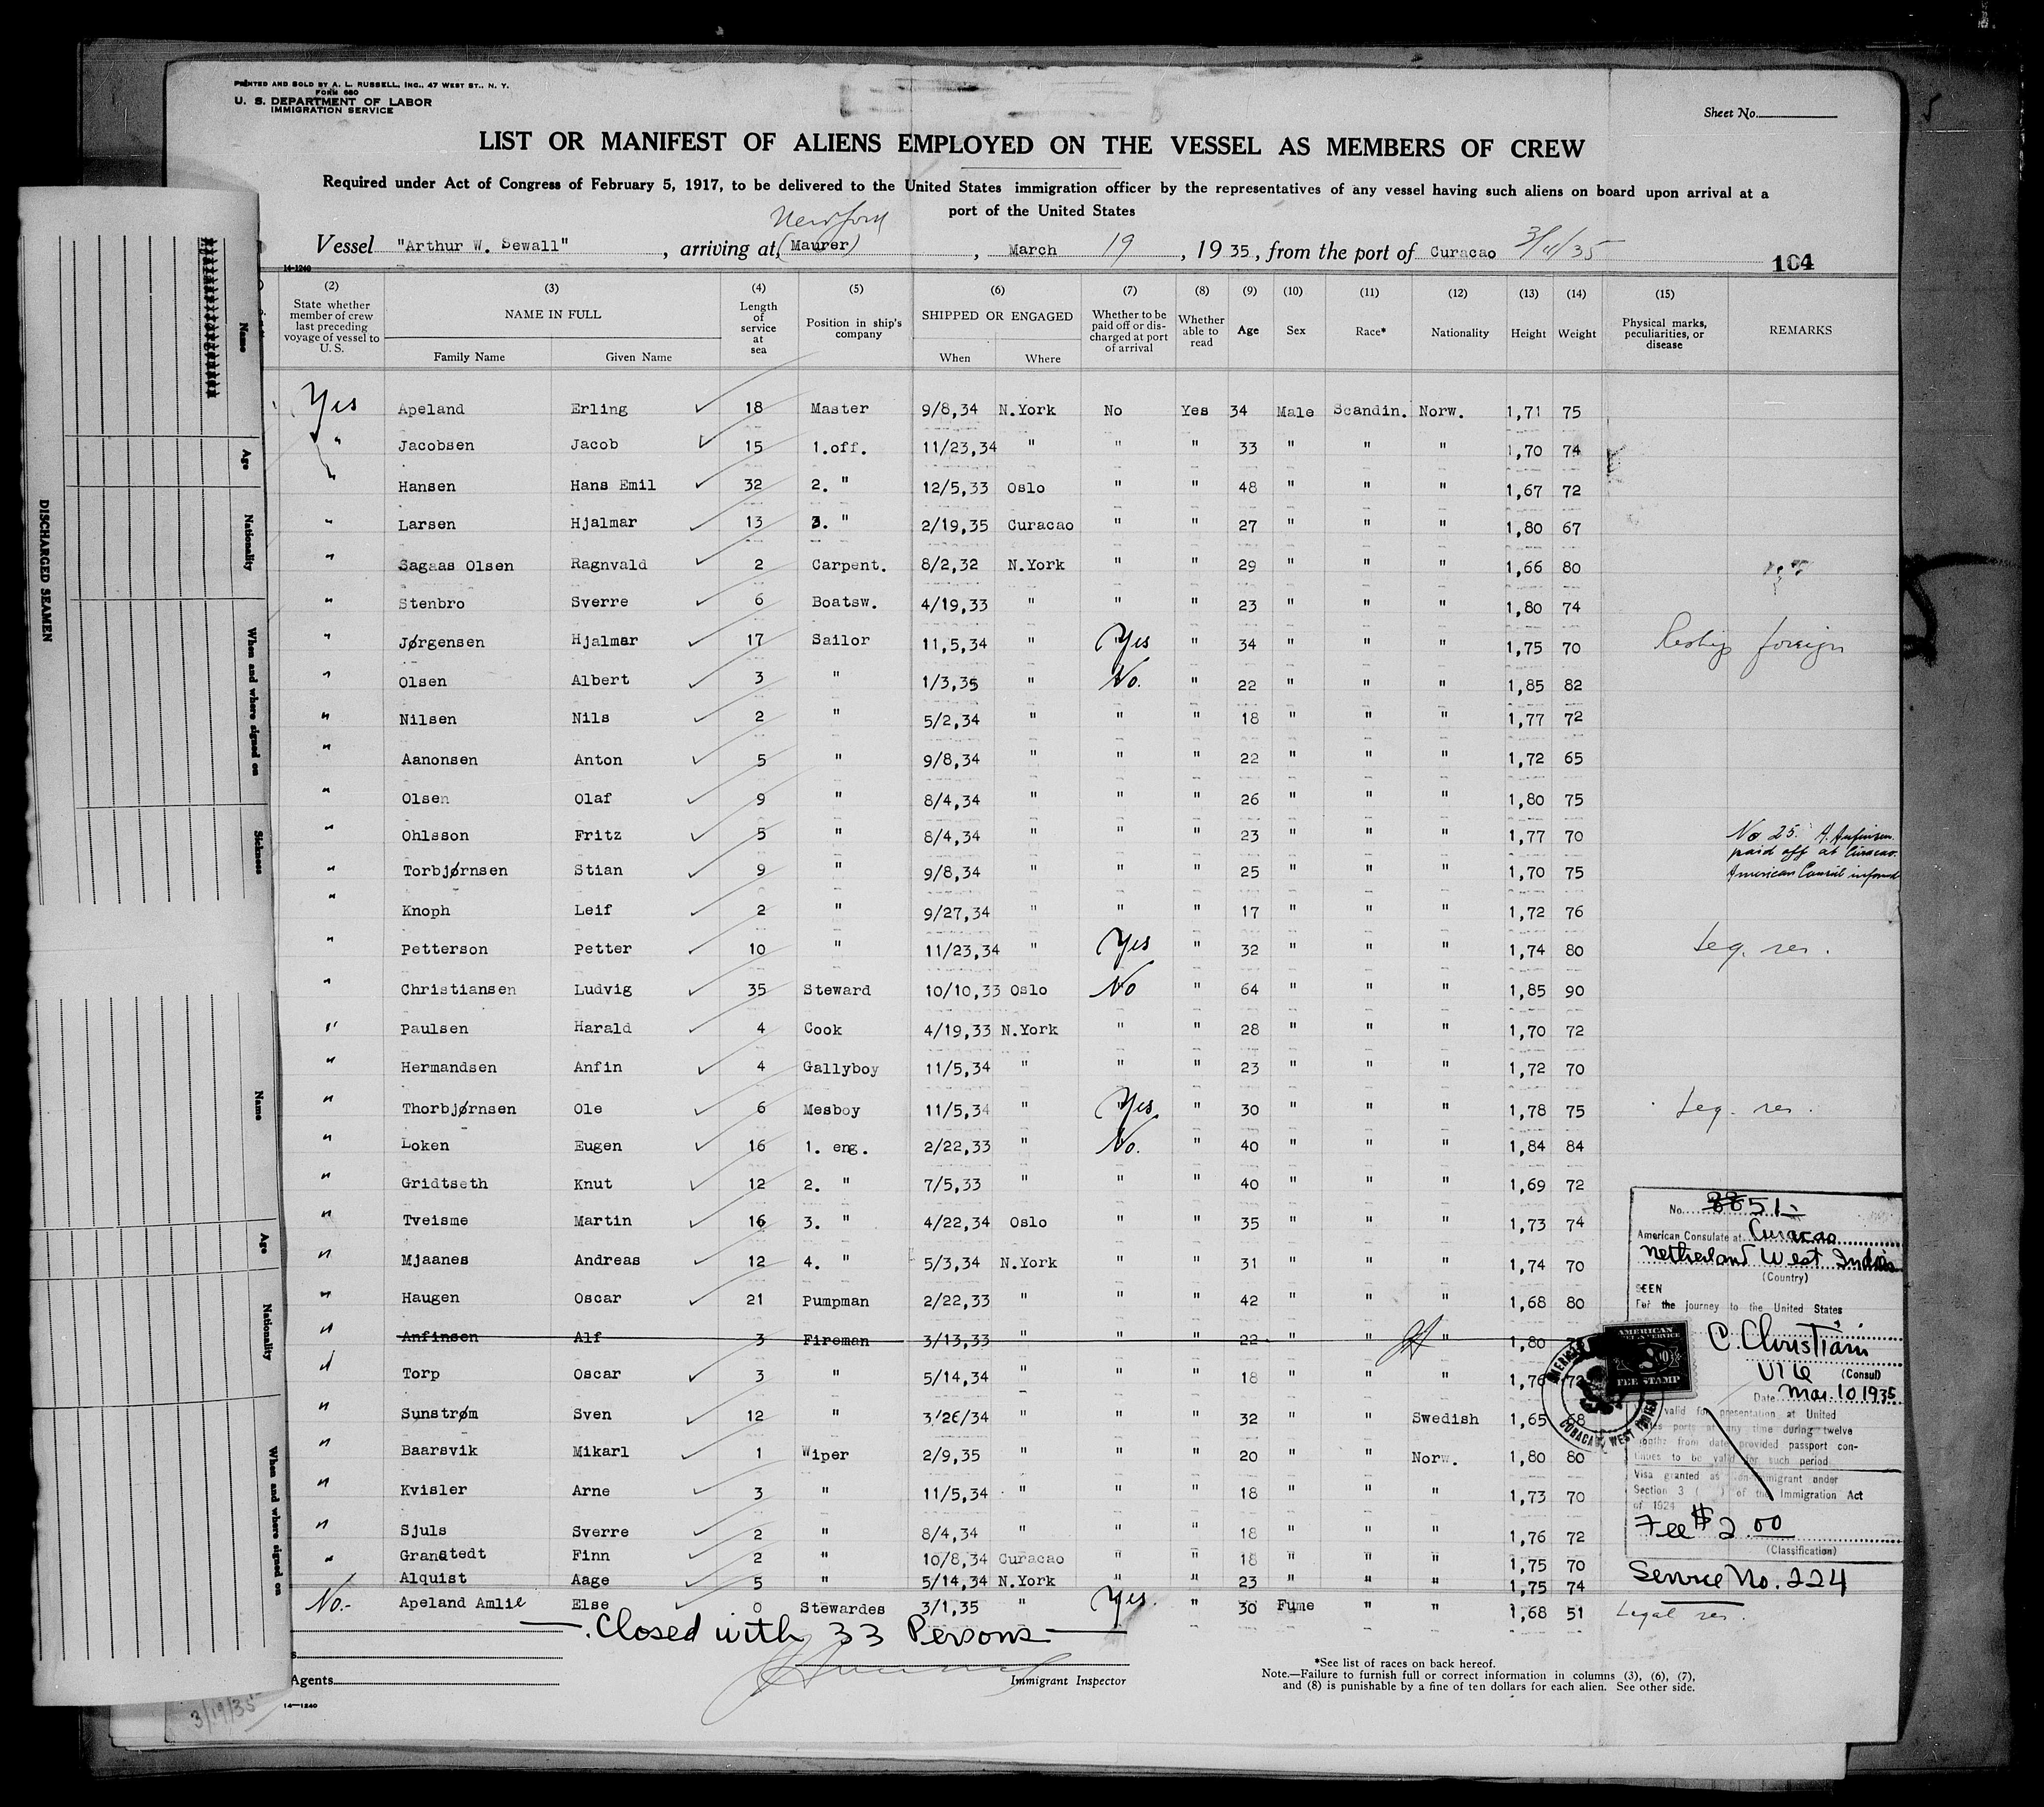 PRINTED AND SOLD BY A. L. RUSSELL, INC., 47 WEST ST., N. Y.
FORM 680
U. S. DEPARTMENT OF LABOR
IMMIGRATION SERVICE
Sheet No.
LIST OR MANIFEST OF ALIENS EMPLOYED ON THE VESSEL AS MEMBERS OF CREW
Required under Act of Congress of February 5, 1917, to be delivered to the United States immigration officer by the representatives of any vessel having such aliens on board upon arrival at a
port of the United States
New York
Vessel "Arthur W. Sewall", arriving at (Maurer), March 19, 1935, from the port of Curacao 3/11/35
14-1240
104
(2) (3) (4) (5) (6) (7) (8) (9) (10) (11) (12) (13) (14) (15)
State whether member of crew last preceding voyage of vessel to U. S.
NAME IN FULL
Family Name Given Name
Length of service at sea
Position in ship's company
SHIPPED OR ENGAGED
When Where
Whether to be paid off or discharged at port of arrival
Whether able to read
Age Sex Race* Nationality Height Weight
Physical marks, peculiarities, or disease
REMARKS
Yes Apeland Erling 18 Master 9/8,34 N.York No Yes 34 Male Scandin. Norw. 1,71 75
" Jacobsen Jacob 15 1.off. 11/23,34 " " " 33 " " " 1,70 74
" Hansen Hans Emil 32 2. " 12/5,33 Oslo " " 48 " " " 1,67 72
" Larsen Hjalmar 13 3. " 2/19,35 Curacao " " 27 " " " 1,80 67
" Sagaas Olsen Ragnvald 2 Carpent. 8/2,32 N.York " " 29 " " " 1,66 80
" Stenbro Sverre 6 Boatsw. 4/19,33 " " " 23 " " " 1,80 74
" Jørgensen Hjalmar 17 Sailor 11,5,34 " Yes " 34 " " " 1,75 70 Reship foreign
" Olsen Albert 3 " 1/3,35 " No. " 22 " " " 1,85 82
" Nilsen Nils 2 " 5/2,34 " " " 18 " " " 1,77 72
" Aanonsen Anton 5 " 9/8,34 " " " 22 " " " 1,72 65
" Olsen Olaf 9 " 8/4,34 " " " 26 " " " 1,80 75
" Ohlsson Fritz 5 " 8/4,34 " " " 23 " " " 1,77 70 No 25. A. Anfinsen
paid off at Curacao.
American Consul informed
" Torbjørnsen Stian 9 " 9/8,34 " " " 25 " " " 1,70 75
" Knoph Leif 2 " 9/27,34 " " " 17 " " " 1,72 76
" Petterson Petter 10 " 11/23,34 " Yes " 32 " " " 1,74 80 Leg. res.
" Christiansen Ludvig 35 Steward 10/10,33 Oslo No " 64 " " " 1,85 90
" Paulsen Harald 4 Cook 4/19,33 N.York " " 28 " " " 1,70 72
" Hermandsen Anfin 4 Gallyboy 11/5,34 " " " 23 " " " 1,72 70
" Thorbjørnsen Ole 6 Mesboy 11/5,34 " Yes " 30 " " " 1,78 75 Leg. res.
" Loken Eugen 16 1. eng. 2/22,33 " No. " 40 " " " 1,84 84
" Gridtseth Knut 12 2. " 7/5,33 " " " 40 " " " 1,69 72
" Tveisme Martin 16 3. " 4/22,34 Oslo " " 35 " " " 1,73 74
" Mjaanes Andreas 12 4. " 5/3,34 N.York " " 31 " " " 1,74 70
" Haugen Oscar 21 Pumpman 2/22,33 " " " 42 " " " 1,68 80
" Anfinsen Alf 3 Fireman 3/13,33 " " " 22 " " " 1,80
" Torp Oscar 3 " 5/14,34 " " " 18 " " " 1,76 72
" Sunstrøm Sven 12 " 3/26/34 " " " 32 " " Swedish 1,65 68
" Baarsvik Mikarl 1 Wiper 2/9,35 " " " 20 " " Norw. 1,80 80
" Kvisler Arne 3 " 11/5,34 " " " 18 " " " 1,73 70
" Sjuls Sverre 2 " 8/4,34 " " " 18 " " " 1,76 72
" Granstedt Finn 2 " 10/8,34 Curacao " " 18 " " " 1,75 70
" Alquist Aage 5 " 5/14,34 N.York " " 23 " " " 1,75 74
No.- Apeland Amlie Else 0 Stewardes 3/1,35 " Yes. " 30 Fume " " 1,68 51 Legal res.
Closed with 33 Persons
Agents
Immigrant Inspector
14-1240
*See list of races on back hereof.
Note.—Failure to furnish full or correct information in columns (3), (6), (7),
and (8) is punishable by a fine of ten dollars for each alien. See other side.
No. 3851
American Consulate at Curacao
Netherland West Indies
(Country)
SEEN
For the journey to the United States
C. Christiani
Vice (Consul)
Date Mar. 10 1935
valid for presentation at United
ports at any time during twelve
months from date provided passport con-
tinues to be valid for such period
Visa granted as non-immigrant under
Section 3 ( ) of the Immigration Act
of 1924
Fee $2.00
(Classification)
Service No. 224
AMERICAN
FEE STAMP
CURACAO, WEST INDIES
DISCHARGED SEAMEN
Name
Age
Nationality
When and where signed on
Sickness
Name
Age
Nationality
When and where signed on
3/19/35